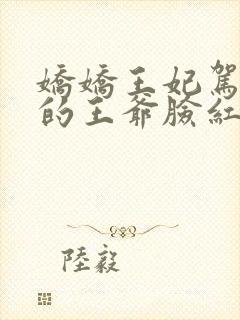 嬌嬌王妃駕
的王爺臉紅
陸毅